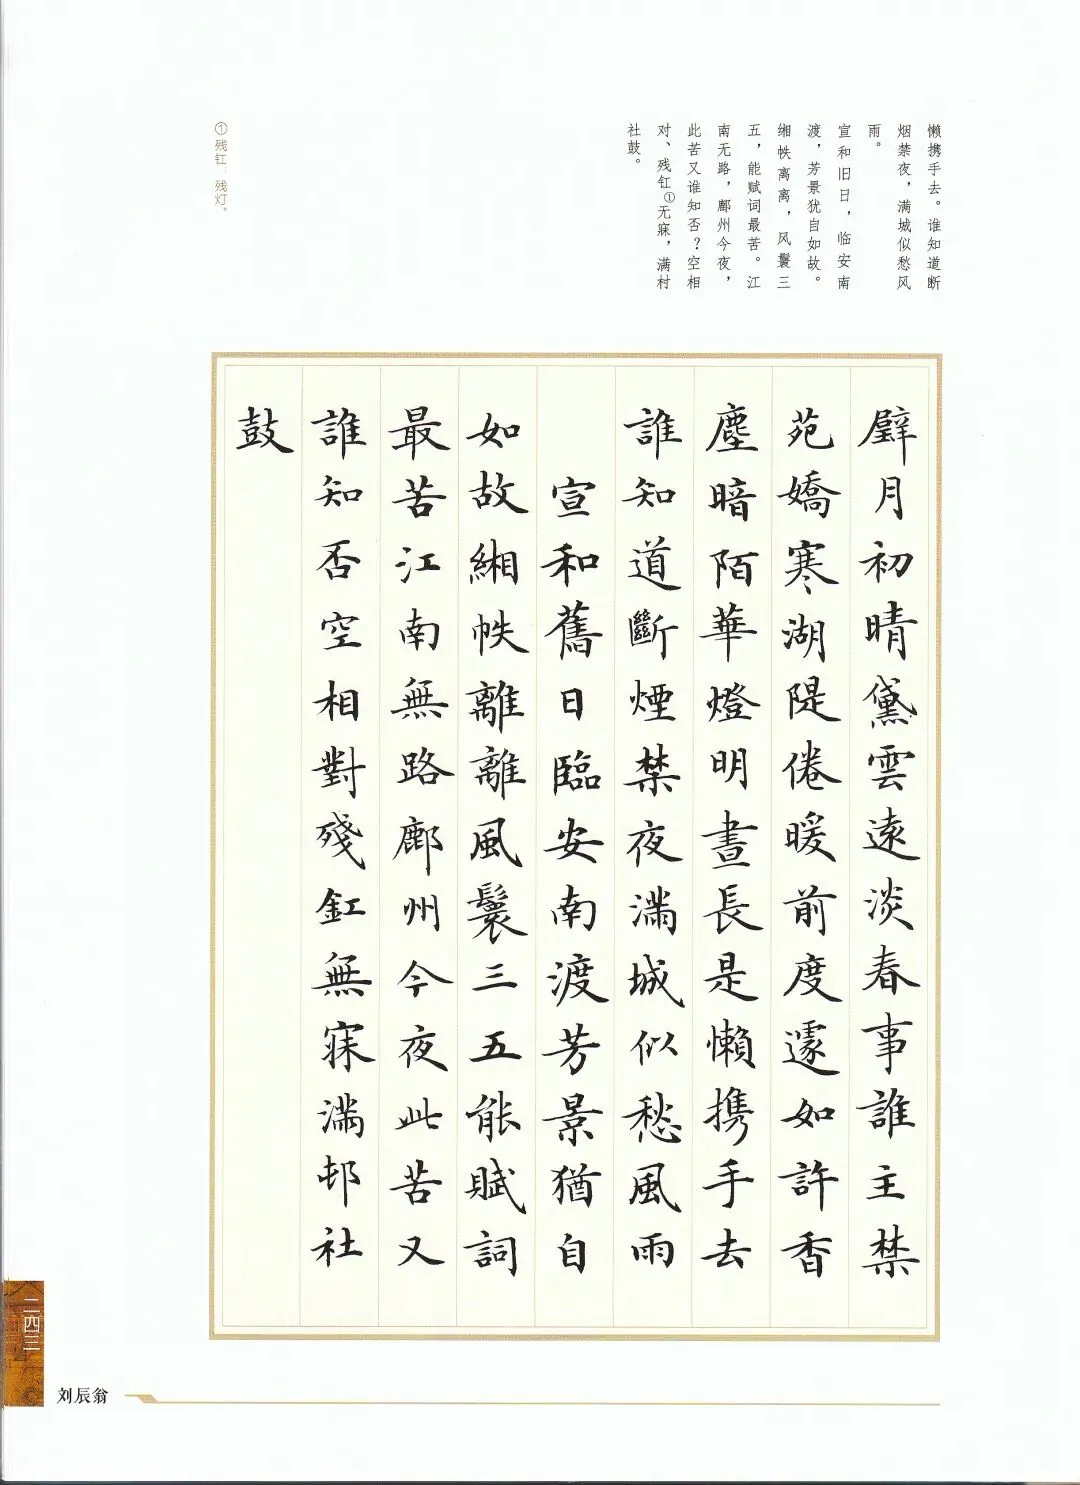 懒携手去。谁知道断
烟禁夜，满城似愁风
雨。
宣和旧日，临安南
渡，芳景犹自如故。
缃帙离离，风鬟三
五，能赋词最苦。江
南无路，鄜州今夜，
此苦又谁知否？空相
对、残釭①无寐，满村
社鼓。
①残釭：残灯。
璧月初晴黛雲遠淡春事誰主禁
苑嬌寒湖隄倦暖前度遽如許香
塵暗陌華燈明晝長是懶携手去
誰知道斷煙禁夜滿城似愁風雨
宣和舊日臨安南渡芳景猶自
如故緗帙離離風鬟三五能賦詞
最苦江南無路鄜州今夜此苦又
誰知否空相對殘釭無寐滿邨社
鼓
二四三
刘辰翁